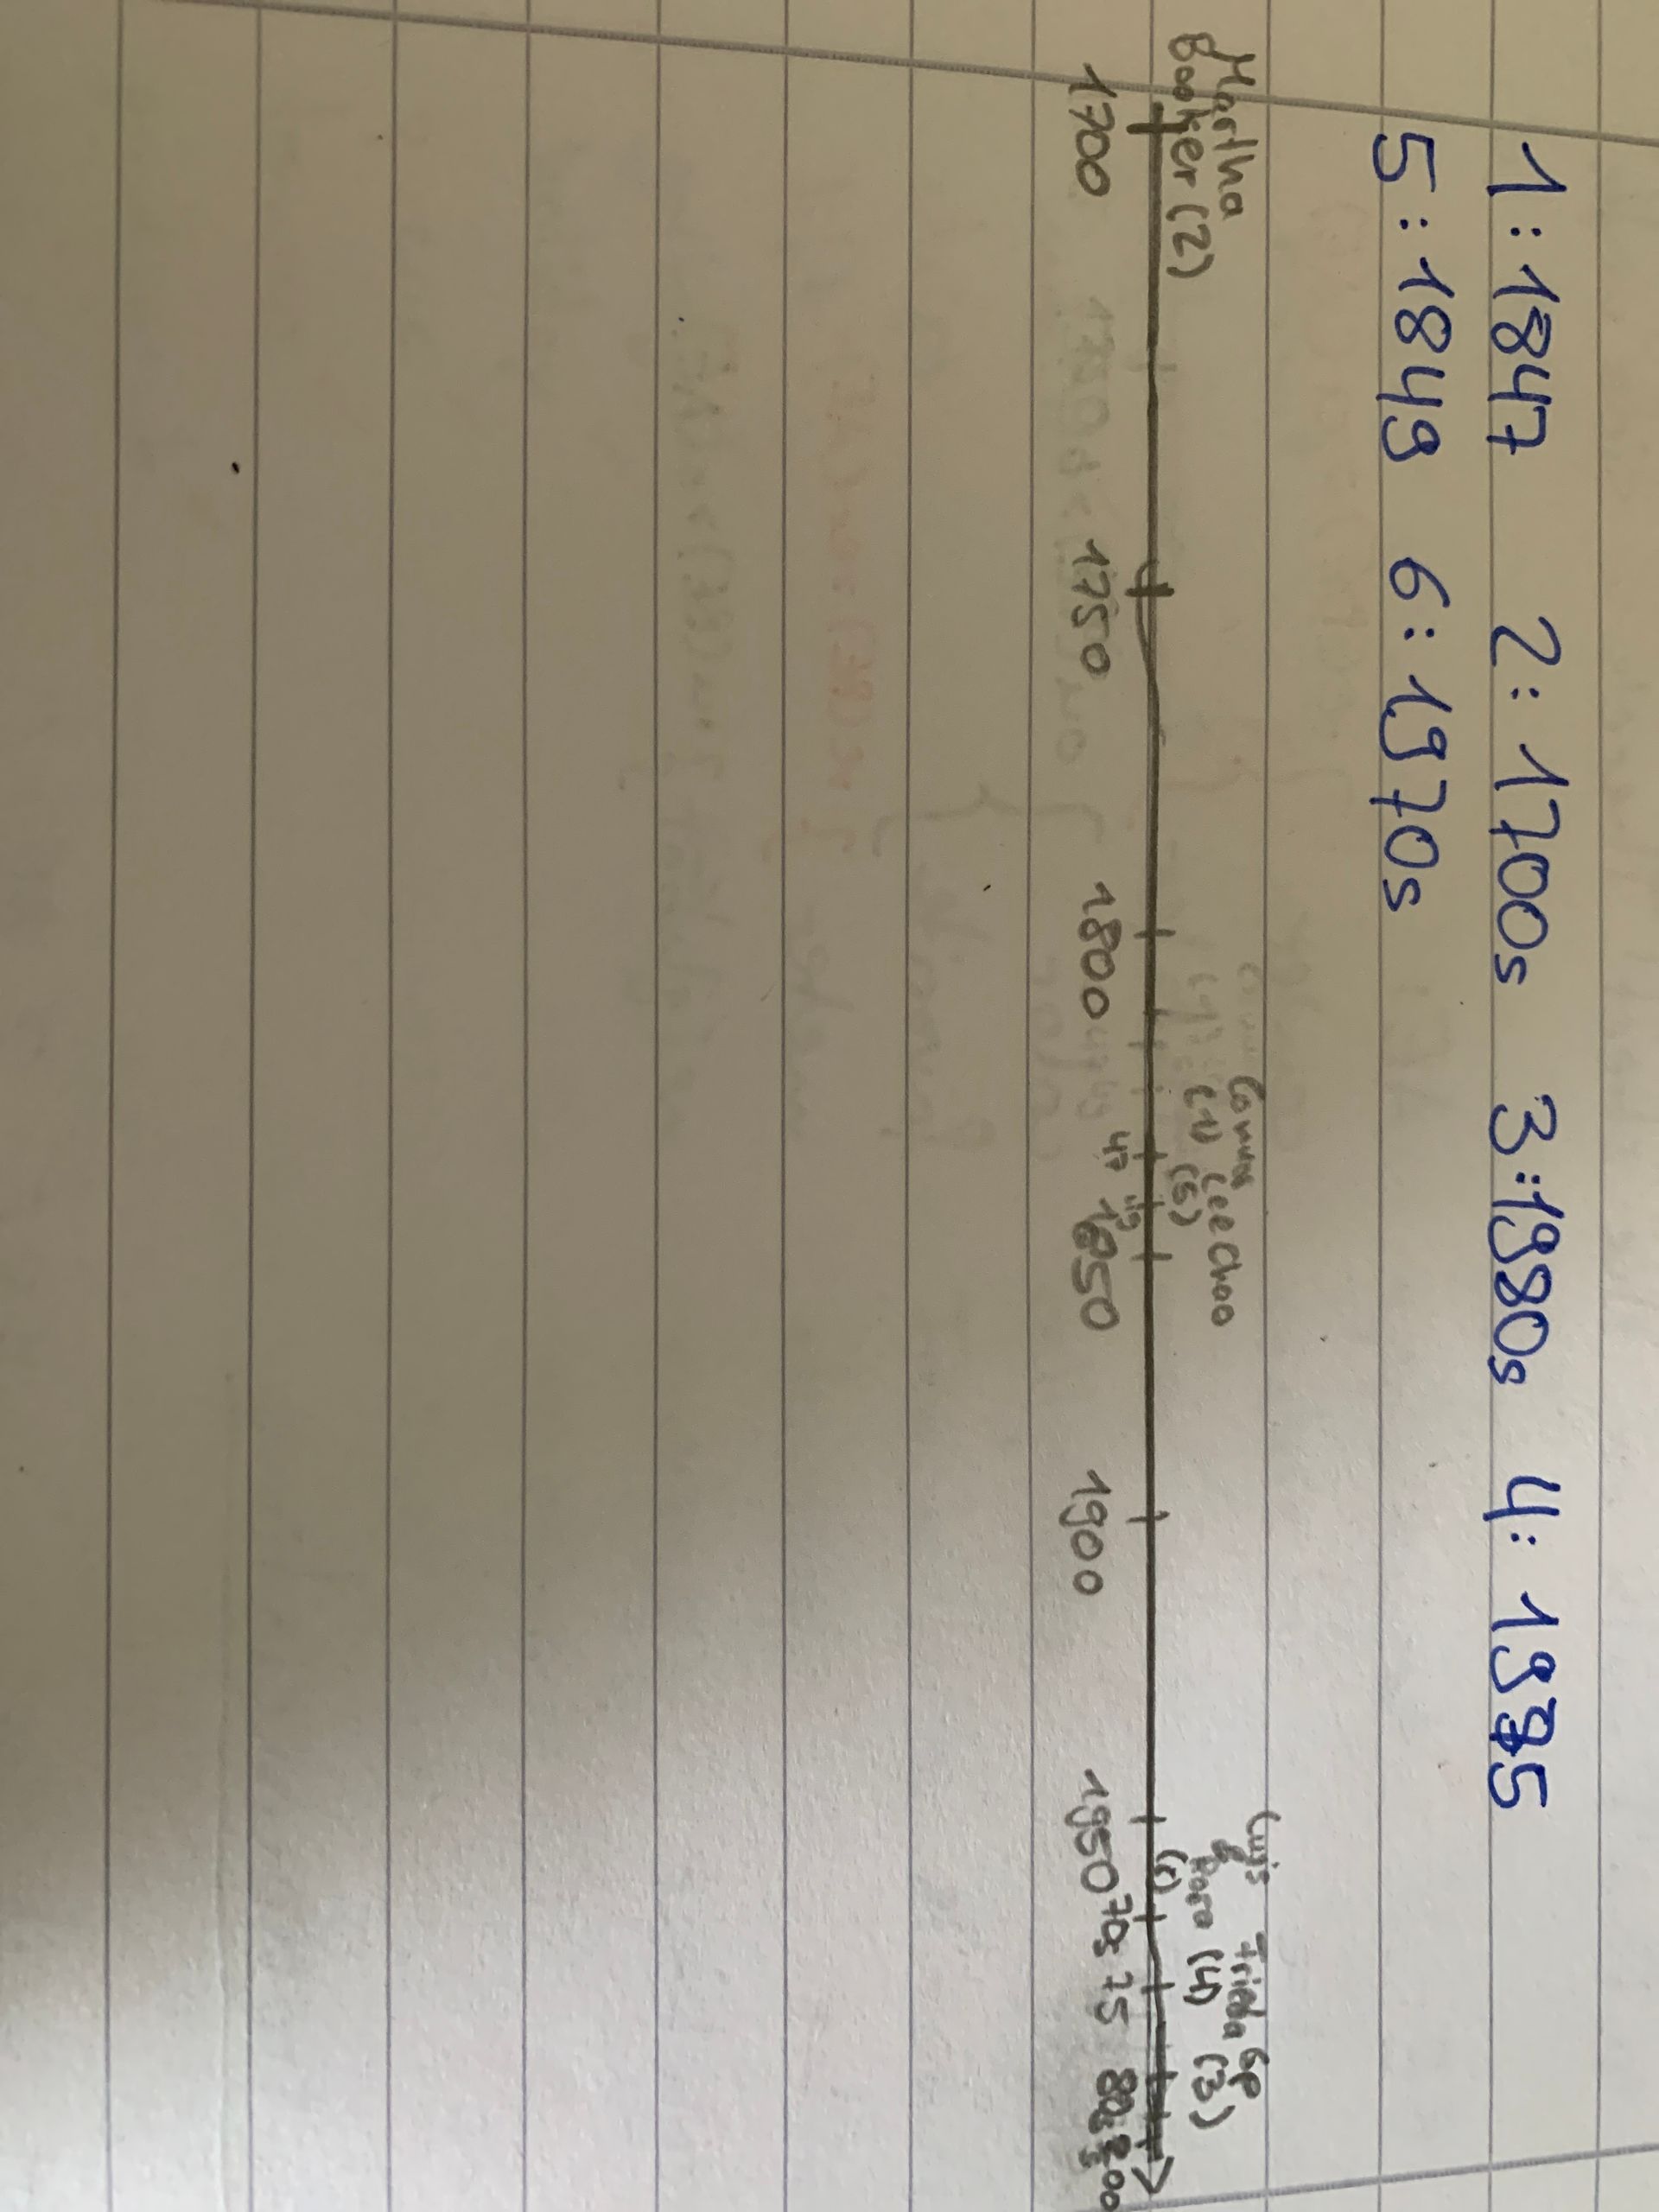 1: 1847 2: 1700s 3: 1980s 4: 1975
5: 1849 6: 1970s
Martha
Booker (2)
Connor Lee Choo
(1) (5)
Luis
& Dora (4)
Tricia Ge
(3)
1700 1750 1800 47 49 1850 1900 1950 70s 75 80s